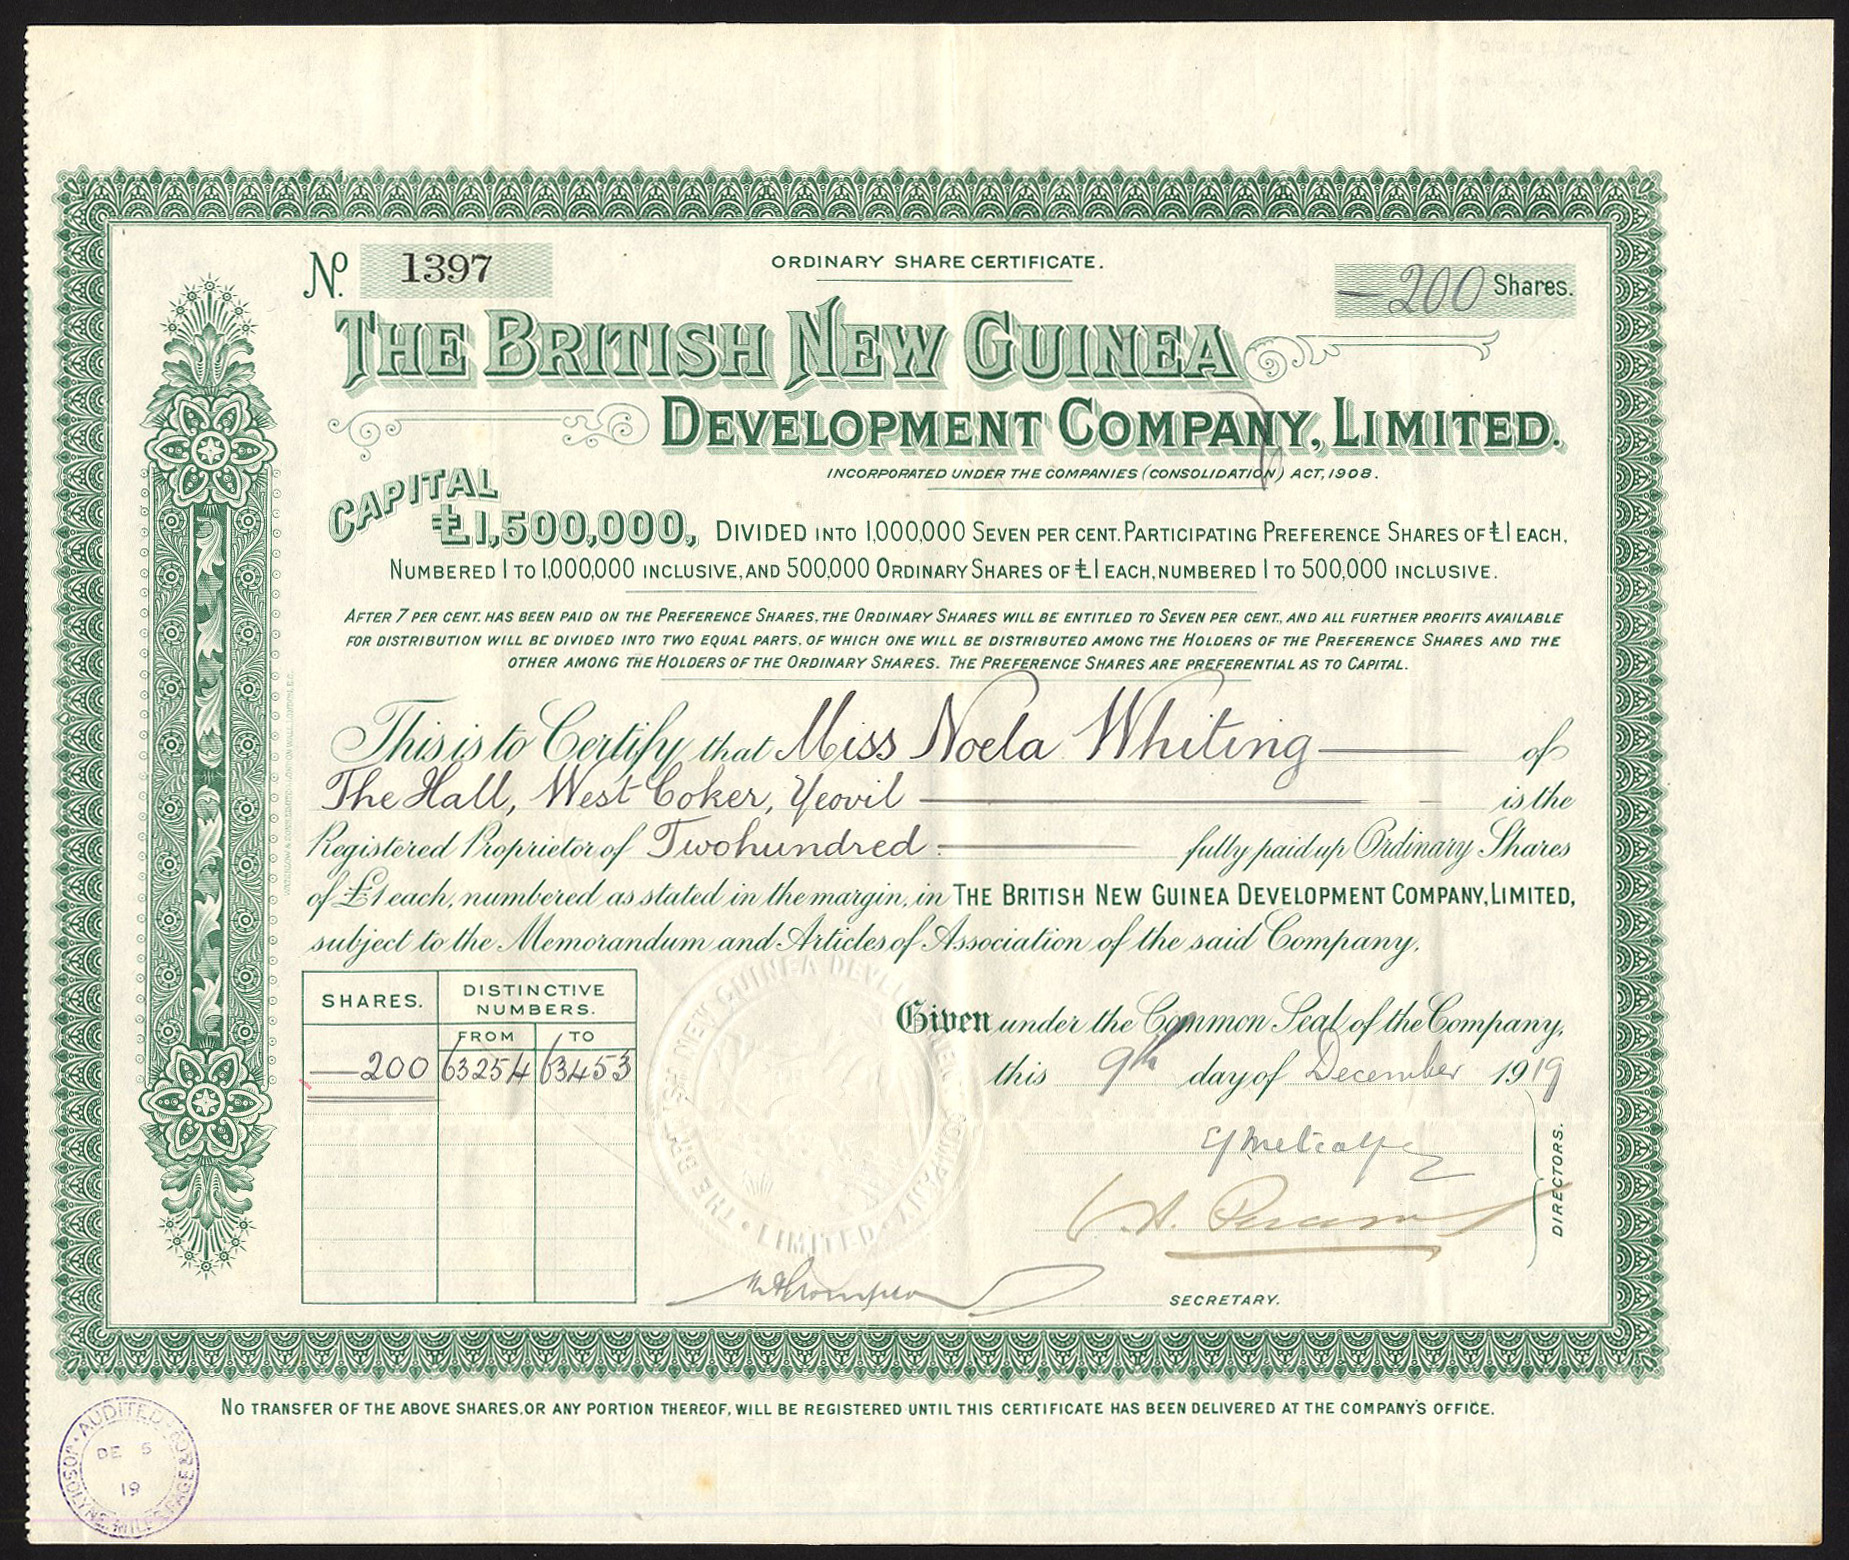 No. 1397
ORDINARY SHARE CERTIFICATE.
—200 Shares.
THE BRITISH NEW GUINEA
DEVELOPMENT COMPANY, LIMITED.
INCORPORATED UNDER THE COMPANIES (CONSOLIDATION) ACT, 1908.
CAPITAL
£1,500,000, DIVIDED INTO 1,000,000 SEVEN PER CENT. PARTICIPATING PREFERENCE SHARES OF £1 EACH,
NUMBERED 1 TO 1,000,000 INCLUSIVE, AND 500,000 ORDINARY SHARES OF £1 EACH, NUMBERED 1 TO 500,000 INCLUSIVE.
AFTER 7 PER CENT. HAS BEEN PAID ON THE PREFERENCE SHARES, THE ORDINARY SHARES WILL BE ENTITLED TO SEVEN PER CENT., AND ALL FURTHER PROFITS AVAILABLE
FOR DISTRIBUTION WILL BE DIVIDED INTO TWO EQUAL PARTS, OF WHICH ONE WILL BE DISTRIBUTED AMONG THE HOLDERS OF THE PREFERENCE SHARES AND THE
OTHER AMONG THE HOLDERS OF THE ORDINARY SHARES. THE PREFERENCE SHARES ARE PREFERENTIAL AS TO CAPITAL.
This is to Certify that Miss Noela Whiting — of
The Hall, West Coker, Yeovil — is the
Registered Proprietor of Two hundred — fully paid up Ordinary Shares
of £1 each, numbered as stated in the margin, in THE BRITISH NEW GUINEA DEVELOPMENT COMPANY, LIMITED,
subject to the Memorandum and Articles of Association of the said Company.
SHARES. DISTINCTIVE NUMBERS.
FROM TO
—200 63254 63453
THE BRITISH NEW GUINEA DEVELOPMENT COMPANY LIMITED
Given under the Common Seal of the Company,
this 9th day of December 1919
EJ Metcalfe
DIRECTORS.
SECRETARY.
NO TRANSFER OF THE ABOVE SHARES, OR ANY PORTION THEREOF, WILL BE REGISTERED UNTIL THIS CERTIFICATE HAS BEEN DELIVERED AT THE COMPANY'S OFFICE.
AUDITED
DE 5
19
JOSOLYNE MILES PAGE & CO